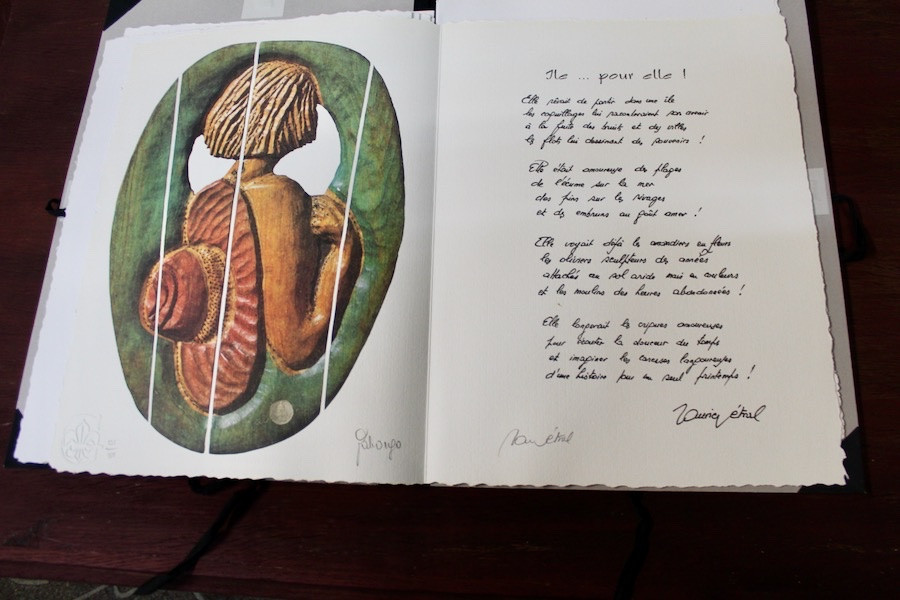 Ile ... pour elle !
Elle rêvait de partir dans une île
les coquillages lui raconteraient son avenir
à la fuite des bruits et des villes
les flots lui dessinent des souvenirs !
Elle était amoureuse des plages
de l'écume sur la mer
des pins sur les rivages
et des embruns au goût amer !
Elle voyait déjà les amandiers en fleurs
les oliviers sculpteurs des années
attachés au sol aride mais en couleurs
et les moulins des heures abandonnées !
Elle les criques amoureuses
pour écouter la douceur du temps
et imaginer les caresses langoureuses
d'une histoire pour un seul printemps !